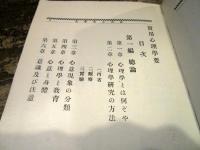 實用心理學要
目次
第一編 總論
第一章 心理學とは何ぞや
第二章 心理學研究の方法
一 內省
二 觀察
三 實驗
第三章 心意現象の分類
第四章 心理學と教育
第五章 心意と身體
第六章 意識及び注意